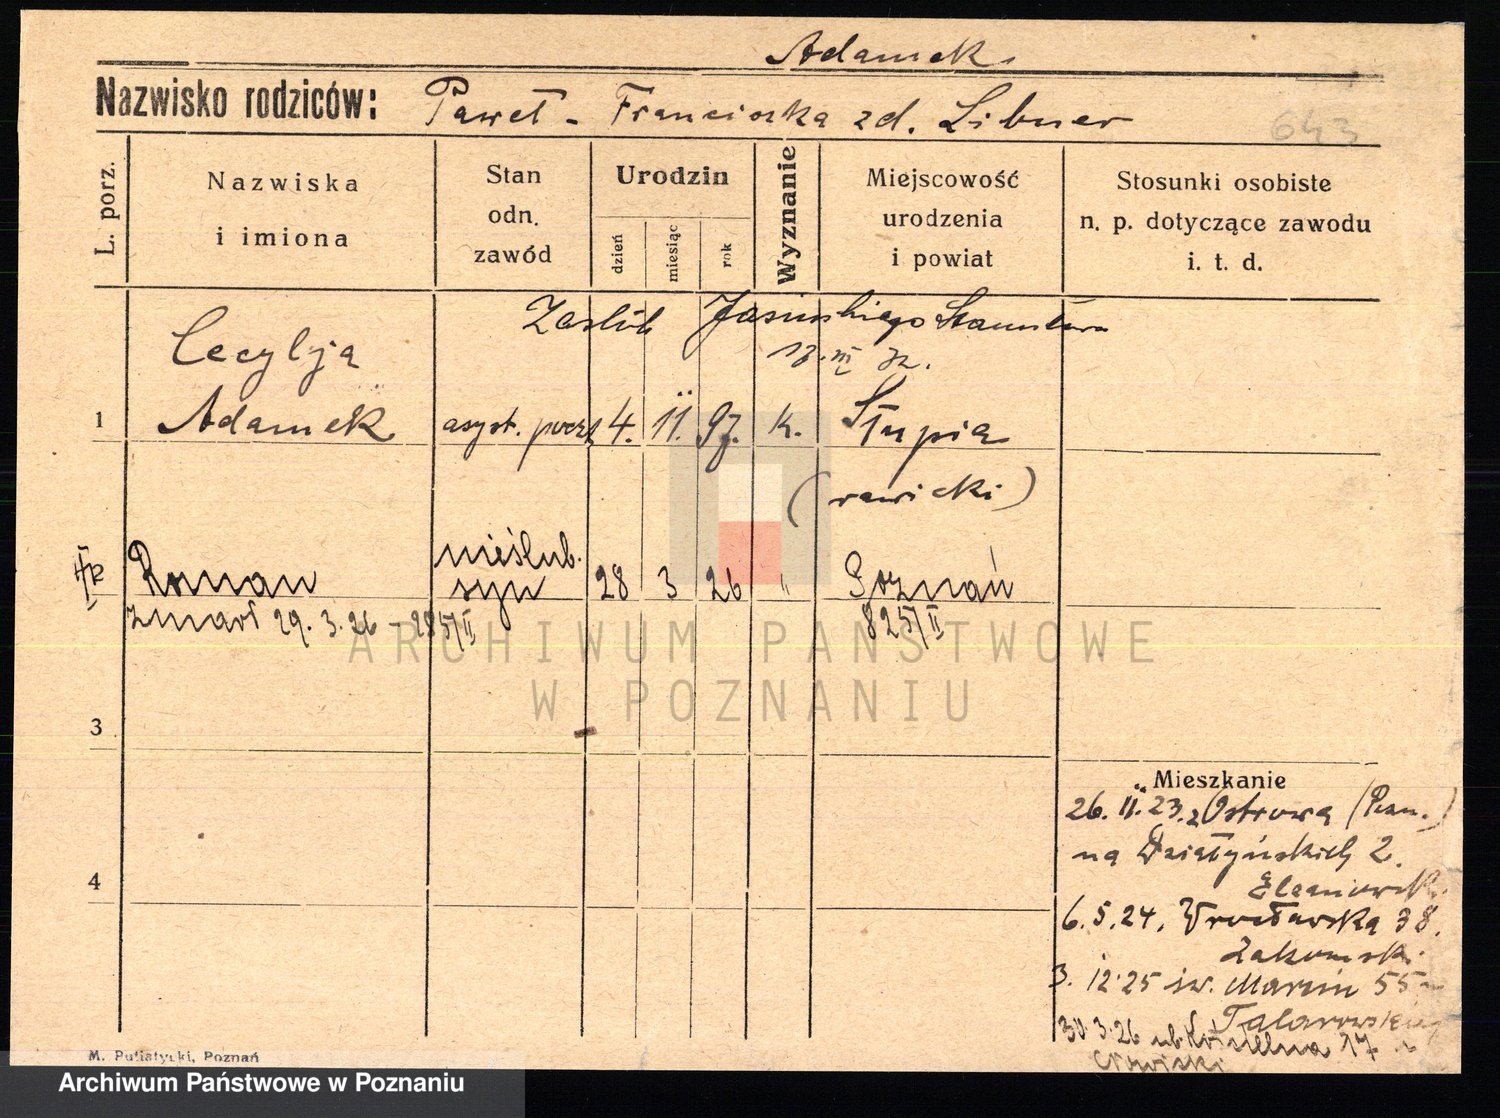 Adamek
Nazwisko rodziców: Paweł - Franciszka zd. Libner
643
L. porz.
Nazwiska
i imiona
Stan
odn.
zawód
Urodzin
dzień
miesiąc
rok
Wyznanie
Miejscowość
urodzenia
i powiat
Stosunki osobiste
n. p. dotyczące zawodu
i. t. d.
Zaślub Jasińskiego Stanisława
Cecylja
1 Adamek asyst. poczt. 4. II. 97. k. Słupia
(rawicki)
nieślub.
Roman syn 28 3 26 " Poznań
zmarł 29. 3. 26 - 285/II 825/II
ARCHIWUM PAŃSTWOWE
W POZNANIU
3
Mieszkanie
26. II. 23. z Ostrowa (Pozn.)
na Działyńskich 2.
4
6. 5. 24. Wrocławska 38.
Zakomski
3. 12. 25 św. Marcin 55
30. 3. 26 17
M. Putiatycki, Poznań
Archiwum Państwowe w Poznaniu